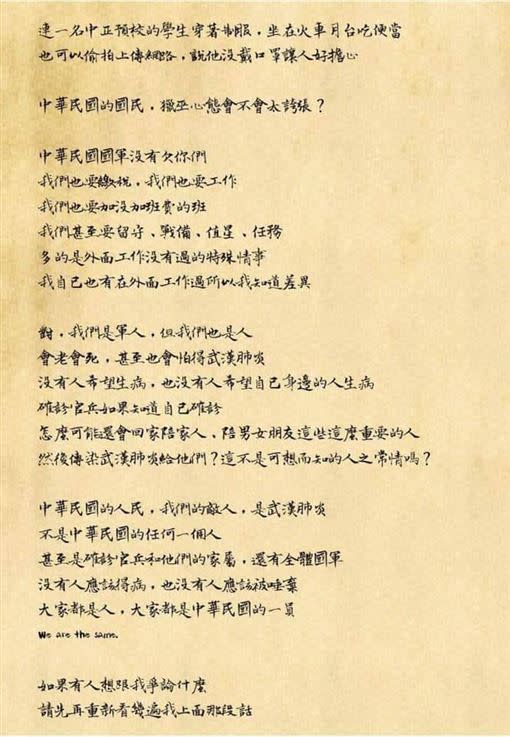 連一名中正預校的學生穿著制服，坐在火車月台吃便當
也可以偷拍上傳網路，說他沒戴口罩讓人好擔心
中華民國的國民，獵巫心態會不會太誇張？
中華民國國軍沒有欠你們
我們也要繳稅，我們也要工作
我們也要加沒加班費的班
我們甚至要留守、戰備、值星、任務
多的是外面工作沒有過的特殊情事
我自己也有在外面工作過所以我知道差異
對，我們是軍人，但我們也是人
會老會死，甚至也會怕得武漢肺炎
沒有人希望生病，也沒有人希望自己身邊的人生病
確診官兵如果知道自己確診
怎麼可能還會回家陪家人、陪男女朋友這些這麼重要的人
然後傳染武漢肺炎給他們？這不是可想而知的人之常情嗎？
中華民國的人民，我們的敵人，是武漢肺炎
不是中華民國的任何一個人
甚至是確診官兵和他們的家屬，還有全體國軍
沒有人應該得病，也沒有人應該被唾棄
大家都是人，大家都是中華民國的一員
We are the same.
如果有人想跟我爭論什麼
請先再重新看幾遍我上面那段話